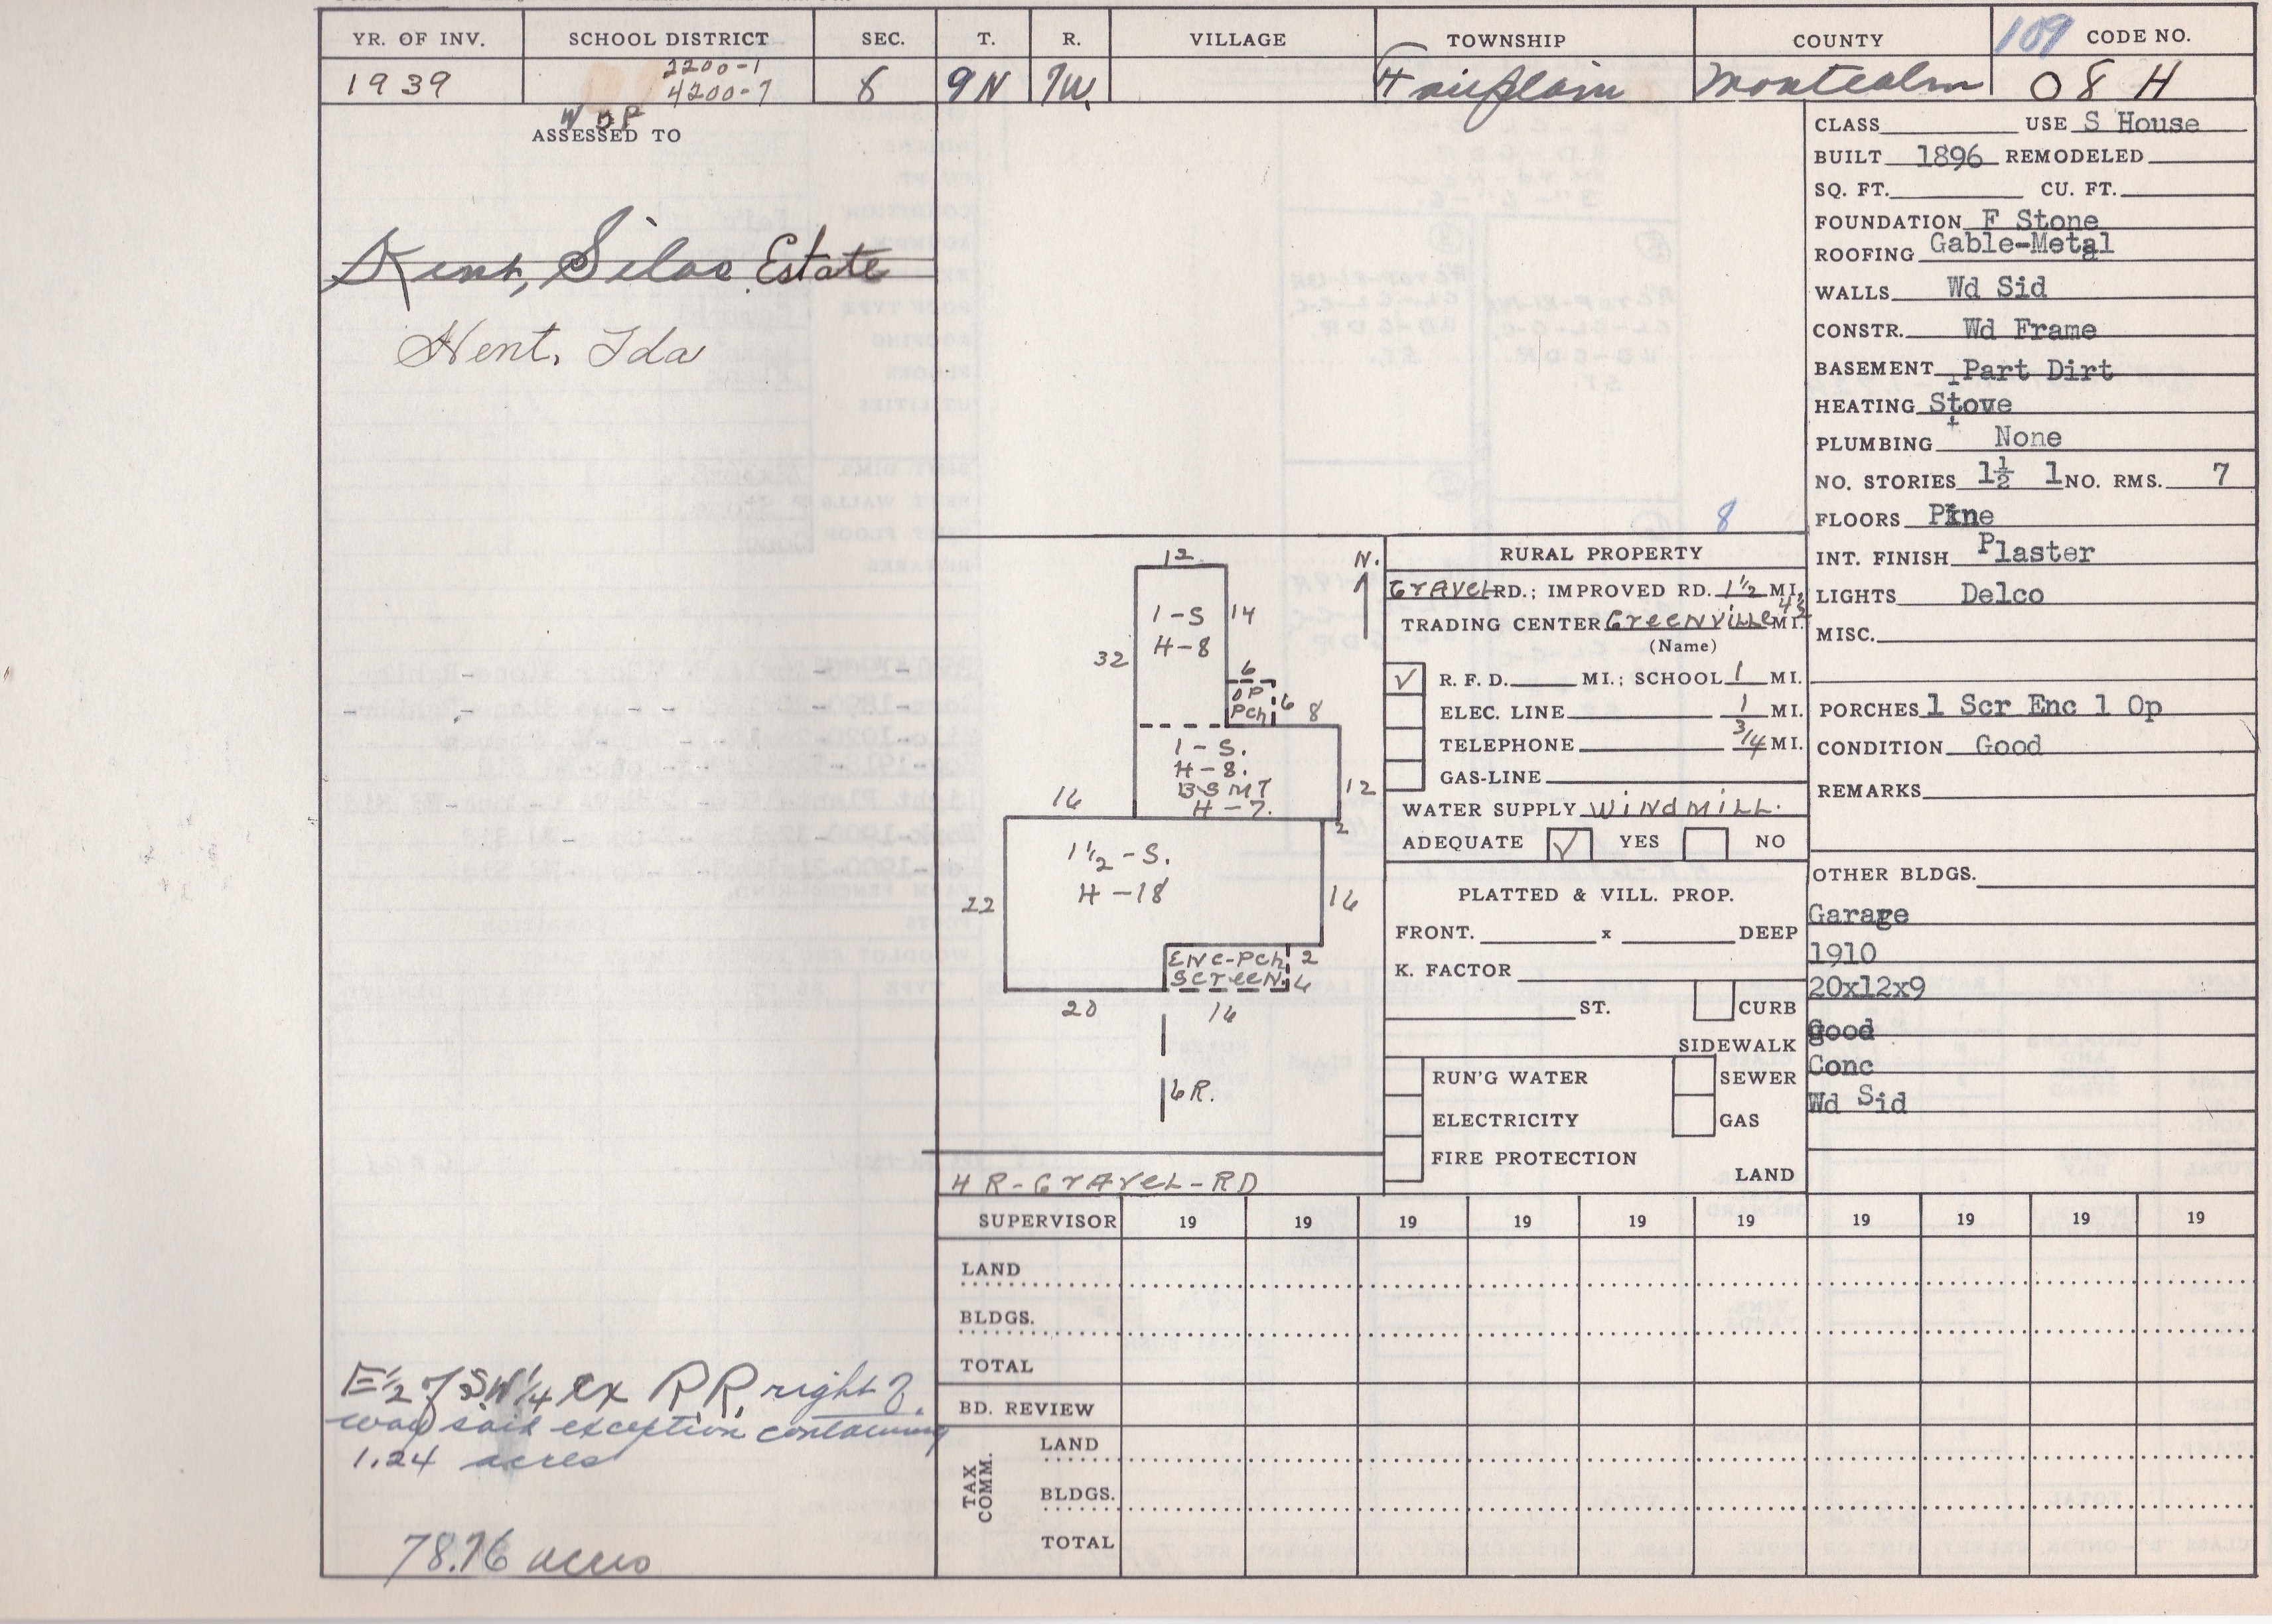 YR. OF INV. SCHOOL DISTRICT SEC. T. R. VILLAGE TOWNSHIP COUNTY 109 CODE NO.
2200-1
1939 4200-7 8 9N 7W. Fairplain Montcalm 08 H
W D P
ASSESSED TO
Kent, Silas Estate
Kent, Ida
E 1/2 of SW 1/4 ex R.R. right of
way said exception containing
1.24 acres
78.76 acres
12
N.
1-S
H-8
14
32
6
OP
Pch
6
8
1-S.
H-8.
BSMT
H-7.
12
16
2
1 1/2-S.
H-18
22
16
ENC-Pch
SCreeN.
2
4
20
16
6R.
4 R-GrAveL-RD
8
RURAL PROPERTY
GrAveL RD.; IMPROVED RD. 1 1/2 MI.
TRADING CENTER GreeNviLLe 4 1/2 MI.
(Name)
✓ R. F. D. MI.; SCHOOL 1 MI.
ELEC. LINE 1 MI.
TELEPHONE 3/4 MI.
GAS-LINE
WATER SUPPLY WiNdmiLL.
ADEQUATE ✓ YES NO
PLATTED & VILL. PROP.
FRONT. x DEEP
K. FACTOR
ST. CURB
SIDEWALK
RUN'G WATER SEWER
ELECTRICITY GAS
FIRE PROTECTION
LAND
CLASS USE S House
BUILT 1896 REMODELED
SQ. FT. CU. FT.
FOUNDATION F Stone
ROOFING Gable-Metal
WALLS Wd Sid
CONSTR. Wd Frame
BASEMENT Part Dirt
HEATING Stove
PLUMBING None
NO. STORIES 1½ 1 NO. RMS. 7
FLOORS Pine
INT. FINISH Plaster
LIGHTS Delco
MISC.
PORCHES 1 Scr Enc 1 Op
CONDITION Good
REMARKS
OTHER BLDGS.
Garage
1910
20x12x9
good
Conc
Wd Sid
SUPERVISOR 19 19 19 19 19 19 19 19 19 19
LAND
BLDGS.
TOTAL
BD. REVIEW
TAX COMM.
LAND
BLDGS.
TOTAL